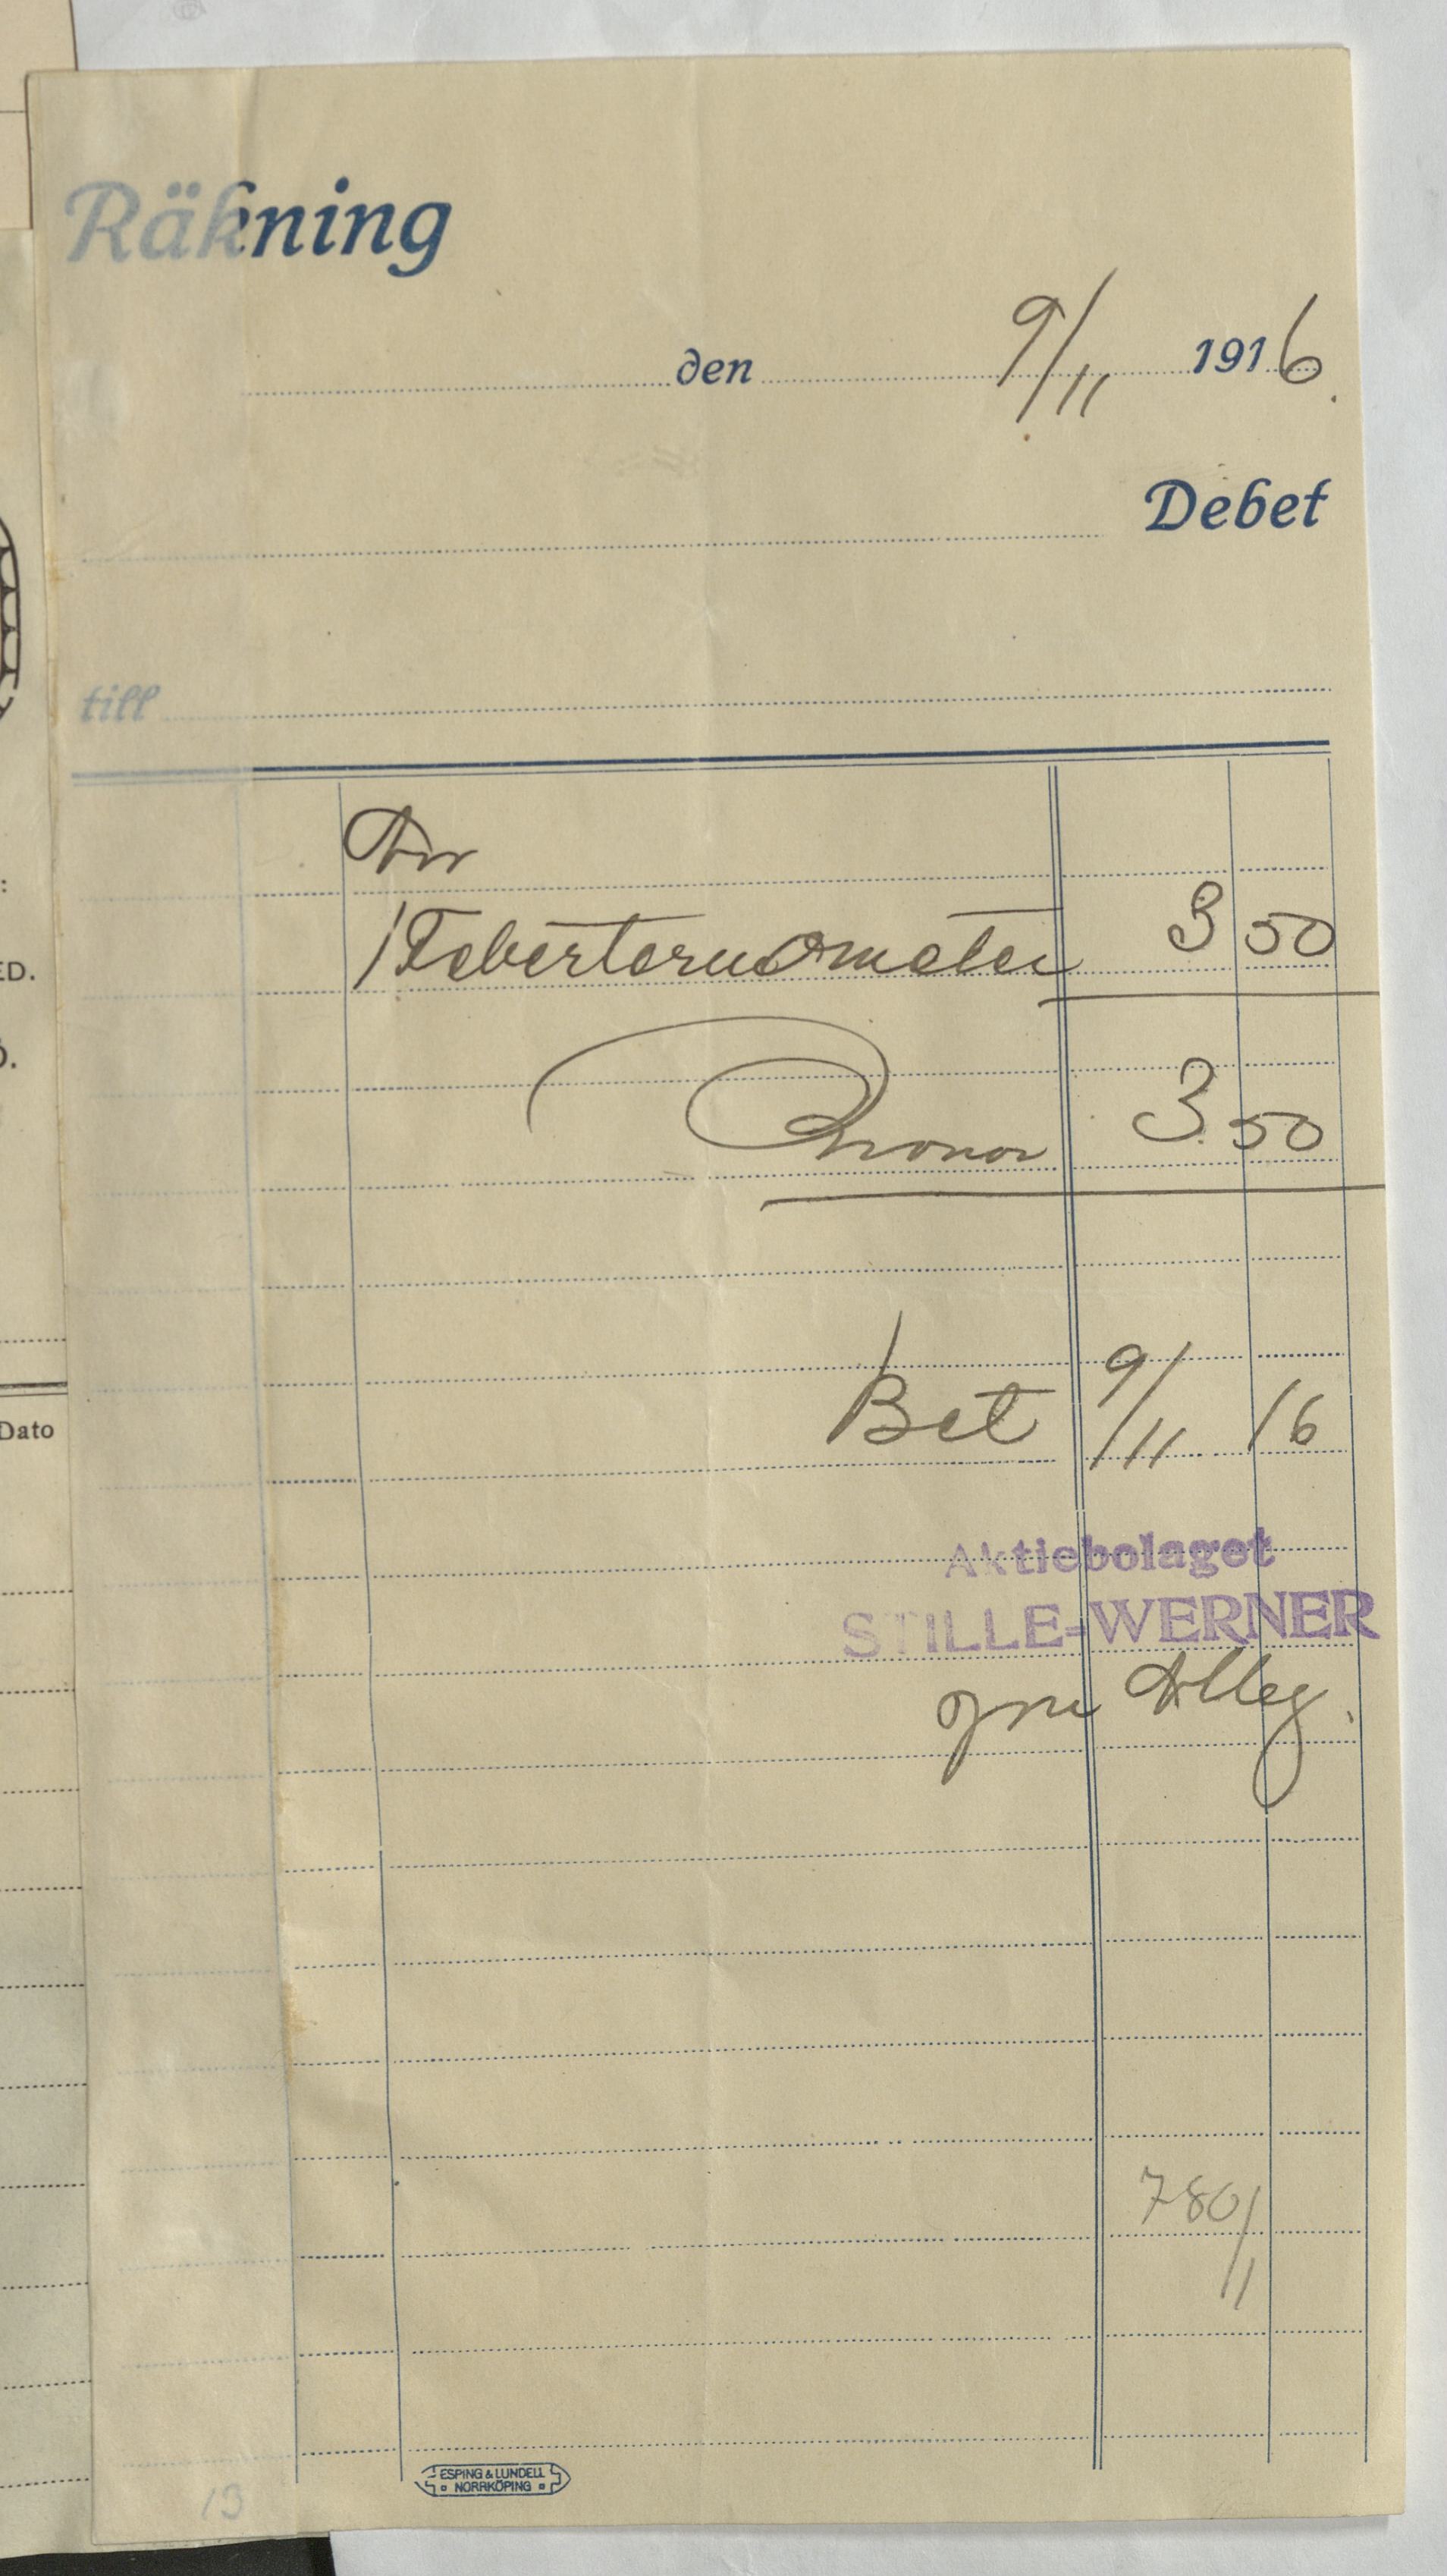 Räkning
den 9/11 1916.
Debet
till
1 Febertermometer 3 50
Kronor 3.50
Bet 9/11 16
Aktiebolaget
STILLE-WERNER
780/
11
ESPING & LUNDELL
NORRKÖPING
19
ED.
Dato